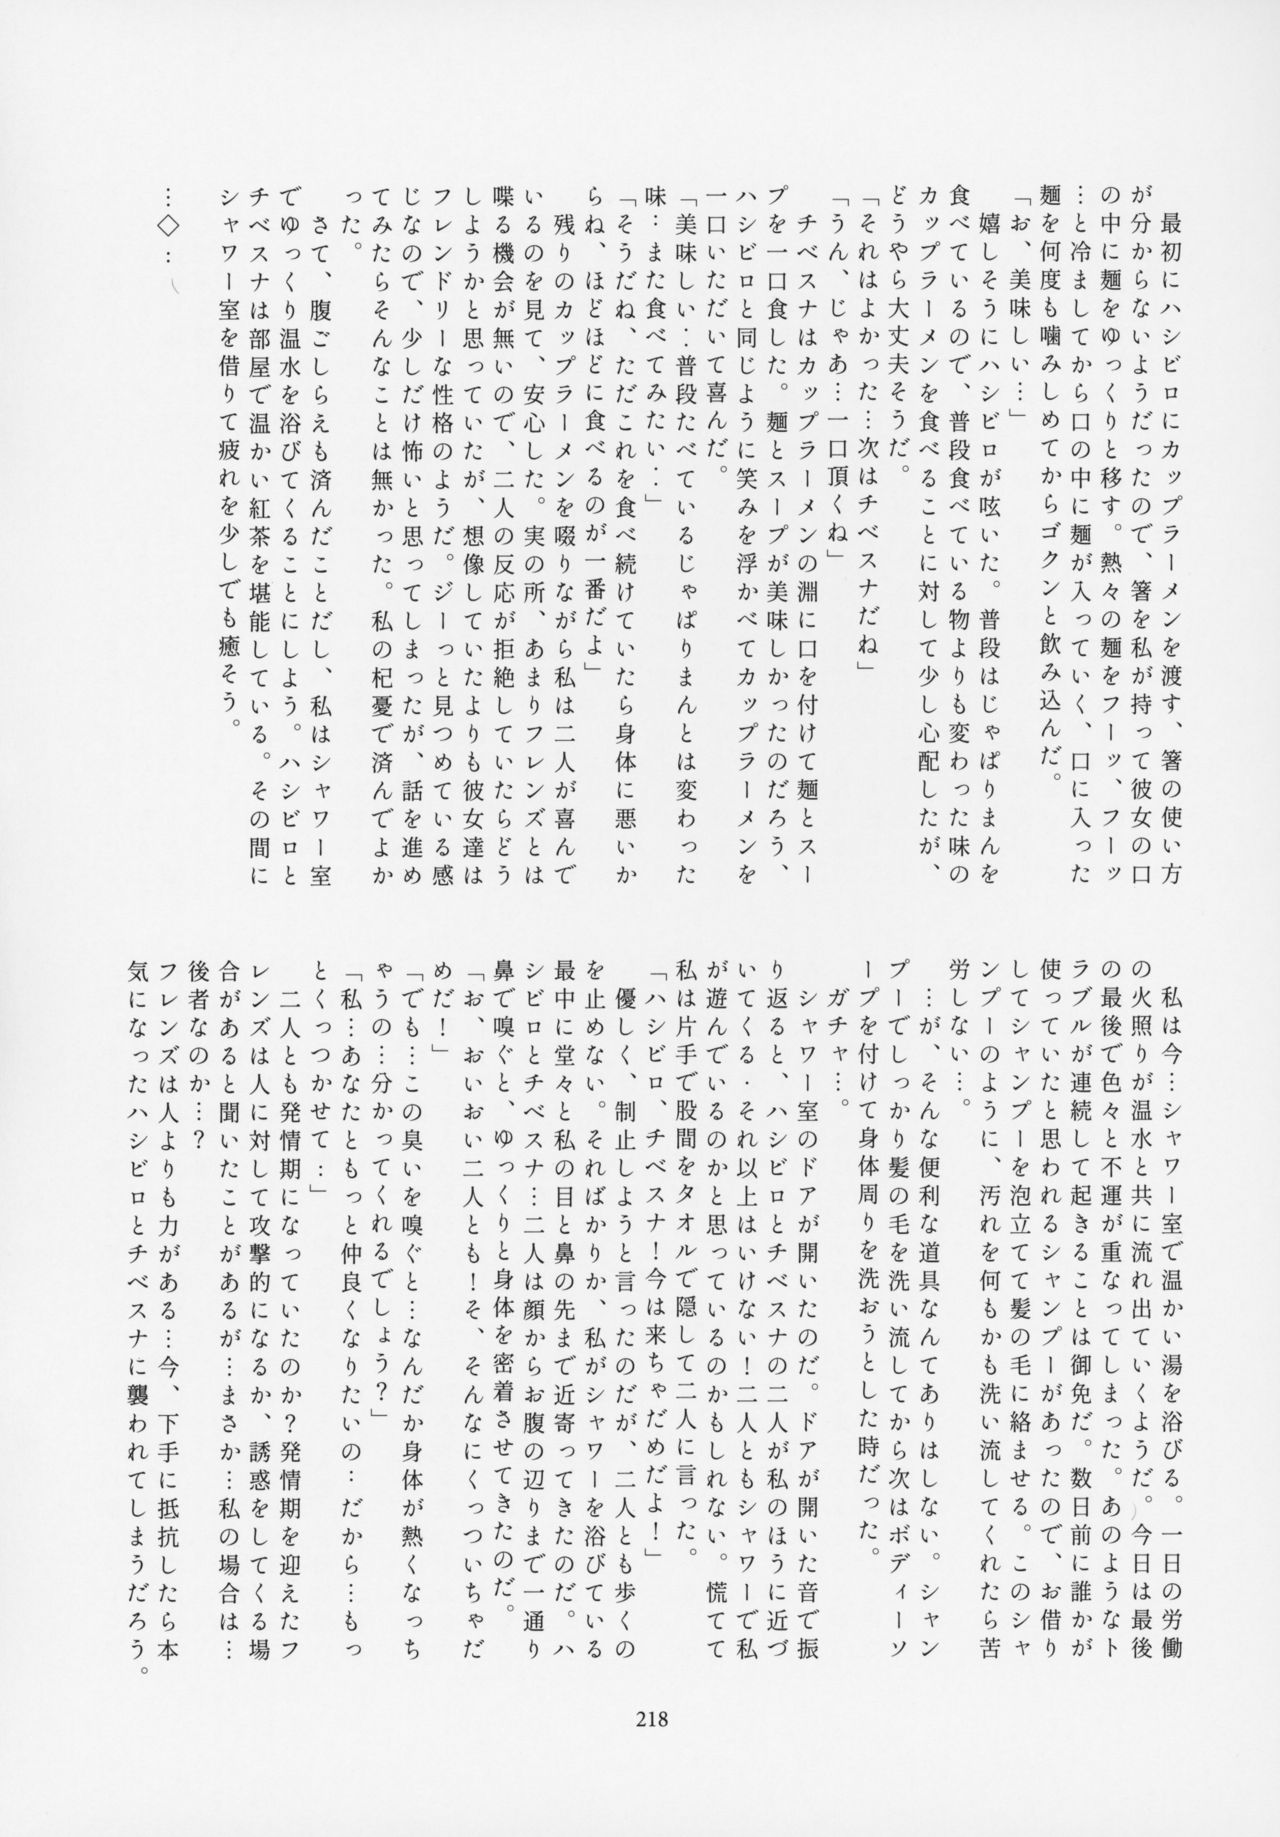 最初にハシビロにカップラーメンを渡す、箸の使い方
が分からないようだったので、箸を私が持って彼女の口
の中に麺をゆっくりと移す。熱々の麺をフーッ、フーッ
…と冷ましてから口の中に麺が入っていく、口に入った
麺を何度も噛みしめてからゴクンと飲み込んだ。
「お、美味しい…」
　嬉しそうにハシビロが呟いた。普段はじゃぱりまんを
食べているので、普段食べている物よりも変わった味の
カップラーメンを食べることに対して少し心配したが、
どうやら大丈夫そうだ。
「それはよかった…次はチベスナだね」
「うん、じゃあ…一口頂くね」
　チベスナはカップラーメンの淵に口を付けて麺とスー
プを一口食した。麺とスープが美味しかったのだろう、
ハシビロと同じように笑みを浮かべてカップラーメンを
一口いただいて喜んだ。
「美味しい‥普段たべているじゃぱりまんとは変わった
味…また食べてみたい‥」
「そうだね、ただこれを食べ続けていたら身体に悪いか
らね、ほどほどに食べるのが一番だよ」
　残りのカップラーメンを啜りながら私は二人が喜んで
いるのを見て、安心した。実の所、あまりフレンズとは
喋る機会が無いので、二人の反応が拒絶していたらどう
しようかと思っていたが、想像していたよりも彼女達は
フレンドリーな性格のようだ。ジーっと見つめている感
じなので、少しだけ怖いと思ってしまったが、話を進め
てみたらそんなことは無かった。私の杞憂で済んでよか
った。
　さて、腹ごしらえも済んだことだし、私はシャワー室
でゆっくり温水を浴びてくることにしよう。ハシビロと
チベスナは部屋で温かい紅茶を堪能している。その間に
シャワー室を借りて疲れを少しでも癒そう。
…◇‥
　私は今…シャワー室で温かい湯を浴びる。一日の労働
の火照りが温水と共に流れ出ていくようだ。今日は最後
の最後で色々と不運が重なってしまった。あのようなト
ラブルが連続して起きることは御免だ。数日前に誰かが
使っていたと思われるシャンプーがあったので、お借り
してシャンプーを泡立てて髪の毛に絡ませる。このシャ
ンプーのように、汚れを何もかも洗い流してくれたら苦
労しない…。
　…が、そんな便利な道具なんてありはしない。シャン
プーでしっかり髪の毛を洗い流してから次はボディーソ
ープを付けて身体周りを洗おうとした時だった。
　ガチャ…。
　シャワー室のドアが開いたのだ。ドアが開いた音で振
り返ると、ハシビロとチベスナの二人が私のほうに近づ
いてくる・それ以上はいけない！二人ともシャワーで私
が遊んでいるのかと思っているのかもしれない。慌てて
私は片手で股間をタオルで隠して二人に言った。
「ハシビロ、チベスナ！今は来ちゃだめだよ！」
　優しく、制止しようと言ったのだが、二人とも歩くの
を止めない。そればかりか、私がシャワーを浴びている
最中に堂々と私の目と鼻の先まで近寄ってきたのだ。ハ
シビロとチベスナ…二人は顔からお腹の辺りまで一通り
鼻で嗅ぐと、ゆっくりと身体を密着させてきたのだ。
「お、おいおい二人とも！そ、そんなにくっついちゃだ
めだ！」
「でも…この臭いを嗅ぐと…なんだか身体が熱くなっち
ゃうの…分かってくれるでしょう？」
「私…あなたともっと仲良くなりたいの‥だから…もっ
とくっつかせて‥」
　二人とも発情期になっていたのか？発情期を迎えたフ
レンズは人に対して攻撃的になるか、誘惑をしてくる場
合があると聞いたことがあるが…まさか…私の場合は…
後者なのか…？
フレンズは人よりも力がある…今、下手に抵抗したら本
気になったハシビロとチベスナに襲われてしまうだろう。
218